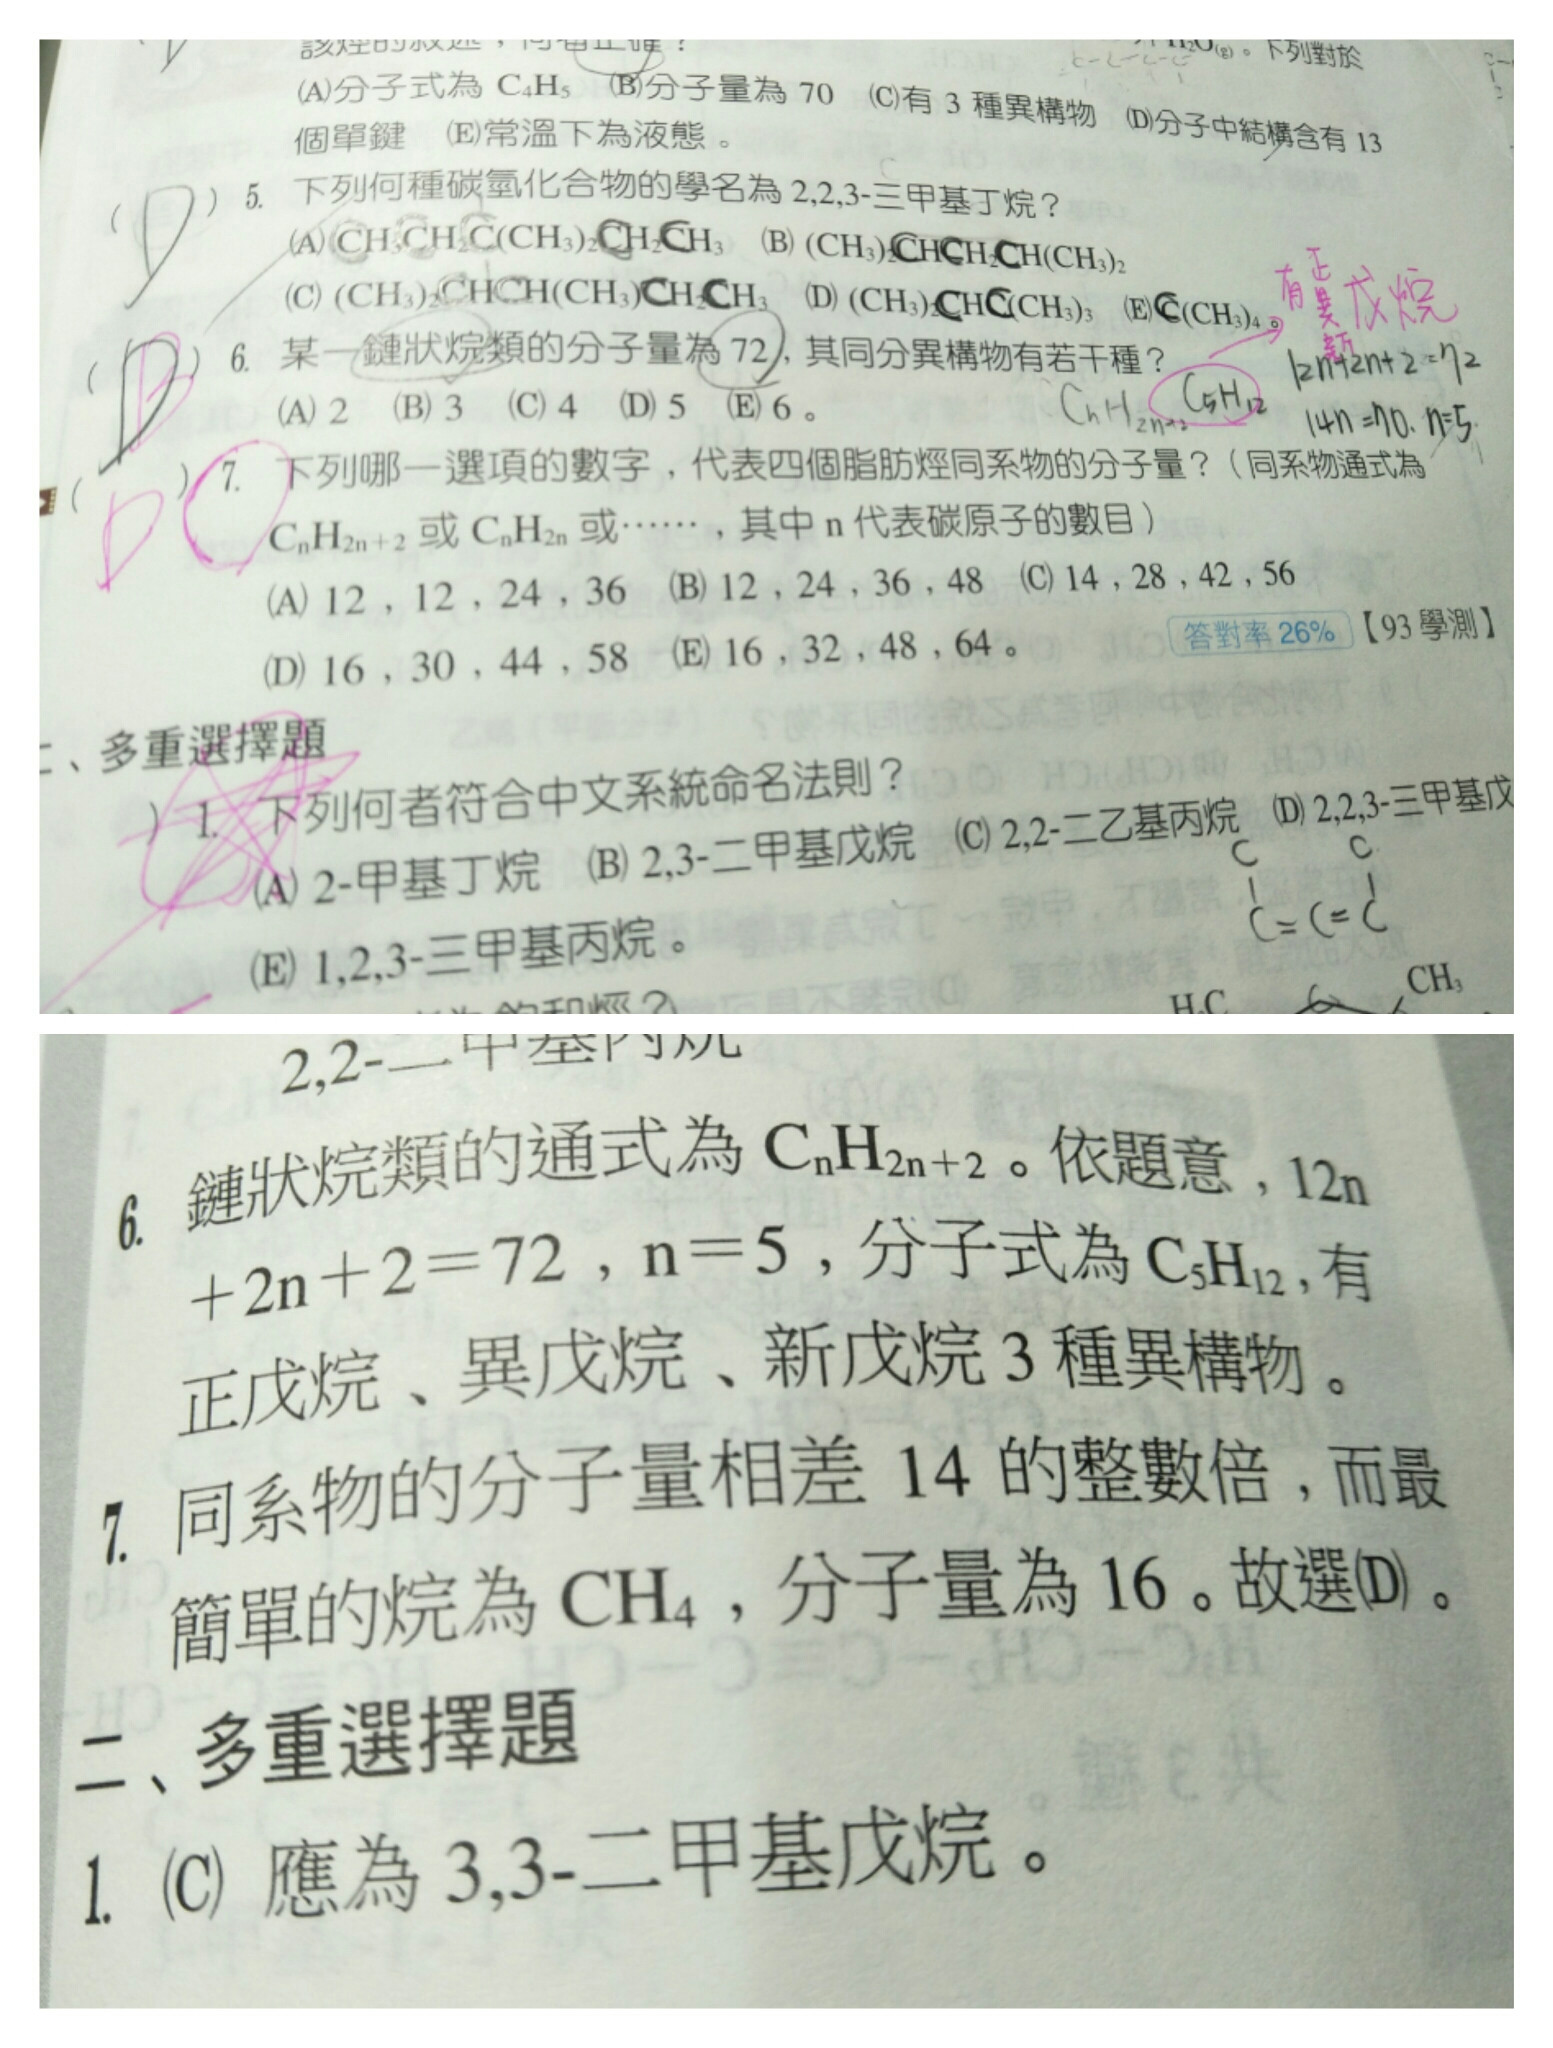 該烴的敘述，何者正確？ H₂O(g)。下列對於
(A)分子式為 C₄H₅ (B)分子量為 70 (C)有 3 種異構物 (D)分子中結構含有 13
個單鍵 (E)常溫下為液態。
(D) 5. 下列何種碳氫化合物的學名為 2,2,3-三甲基丁烷？
(A) CH₃CH₂C(CH₃)₂CH₂CH₃ (B) (CH₃)₂CHCH₂CH(CH₃)₂
(C) (CH₃)₂CHCH(CH₃)CH₂CH₃ (D) (CH₃)₂CHC(CH₃)₃ (E) C(CH₃)₄。
有正異新戊烷
(B) 6. 某一鏈狀烷類的分子量為 72，其同分異構物有若干種？
12n+2n+2=72
(A) 2 (B) 3 (C) 4 (D) 5 (E) 6。
CnH2n+2 C₅H₁₂
14n=70. n=5
(D) 7. 下列哪一選項的數字，代表四個脂肪烴同系物的分子量？（同系物通式為
CnH2n+2 或 CnH2n 或……，其中 n 代表碳原子的數目）
(A) 12，12，24，36 (B) 12，24，36，48 (C) 14，28，42，56
(D) 16，30，44，58 (E) 16，32，48，64。
答對率 26% 【93 學測】
二、多重選擇題
) 1. 下列何者符合中文系統命名法則？
(A) 2-甲基丁烷 (B) 2,3-二甲基戊烷 (C) 2,2-二乙基丙烷 (D) 2,2,3-三甲基戊
C C
C=C=C
(E) 1,2,3-三甲基丙烷。
為飽和烴？
H₃C CH₃
2,2-二甲基丙烷
6. 鏈狀烷類的通式為 CnH2n+2。依題意，12n
+2n+2=72，n=5，分子式為 C₅H₁₂，有
正戊烷、異戊烷、新戊烷 3 種異構物。
7. 同系物的分子量相差 14 的整數倍，而最
簡單的烷為 CH₄，分子量為 16。故選(D)。
二、多重選擇題
1. (C) 應為 3,3-二甲基戊烷。